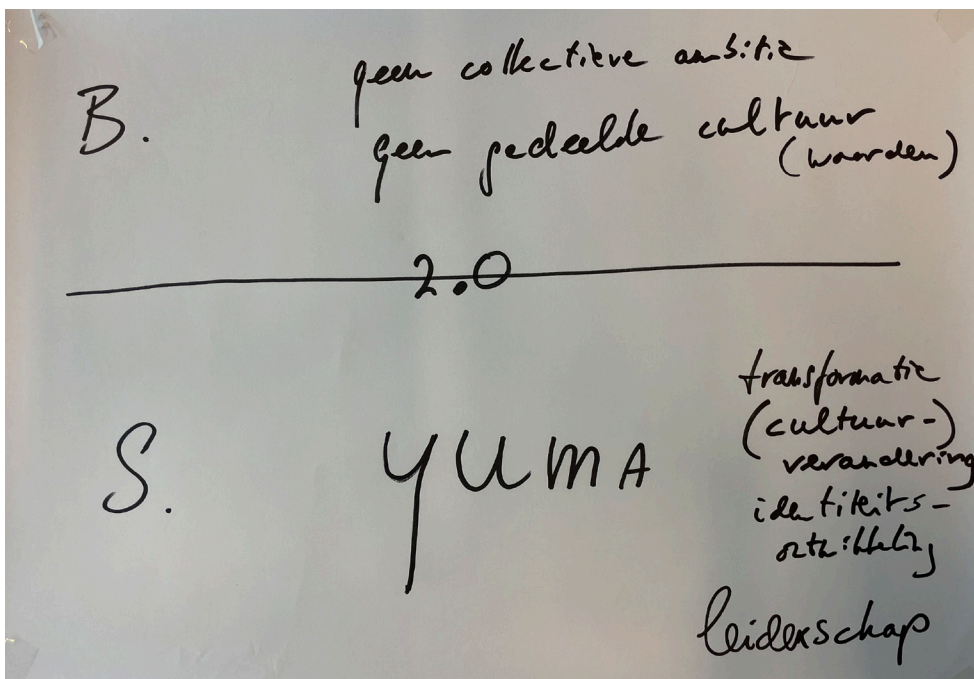 geen collectieve ambitie
B.
geen gedeelde cultuur
(waarden)
2.0
transformatie
(cultuur-)
verandering
S. YUMA
identiteits-
ontwikkeling
leiderschap